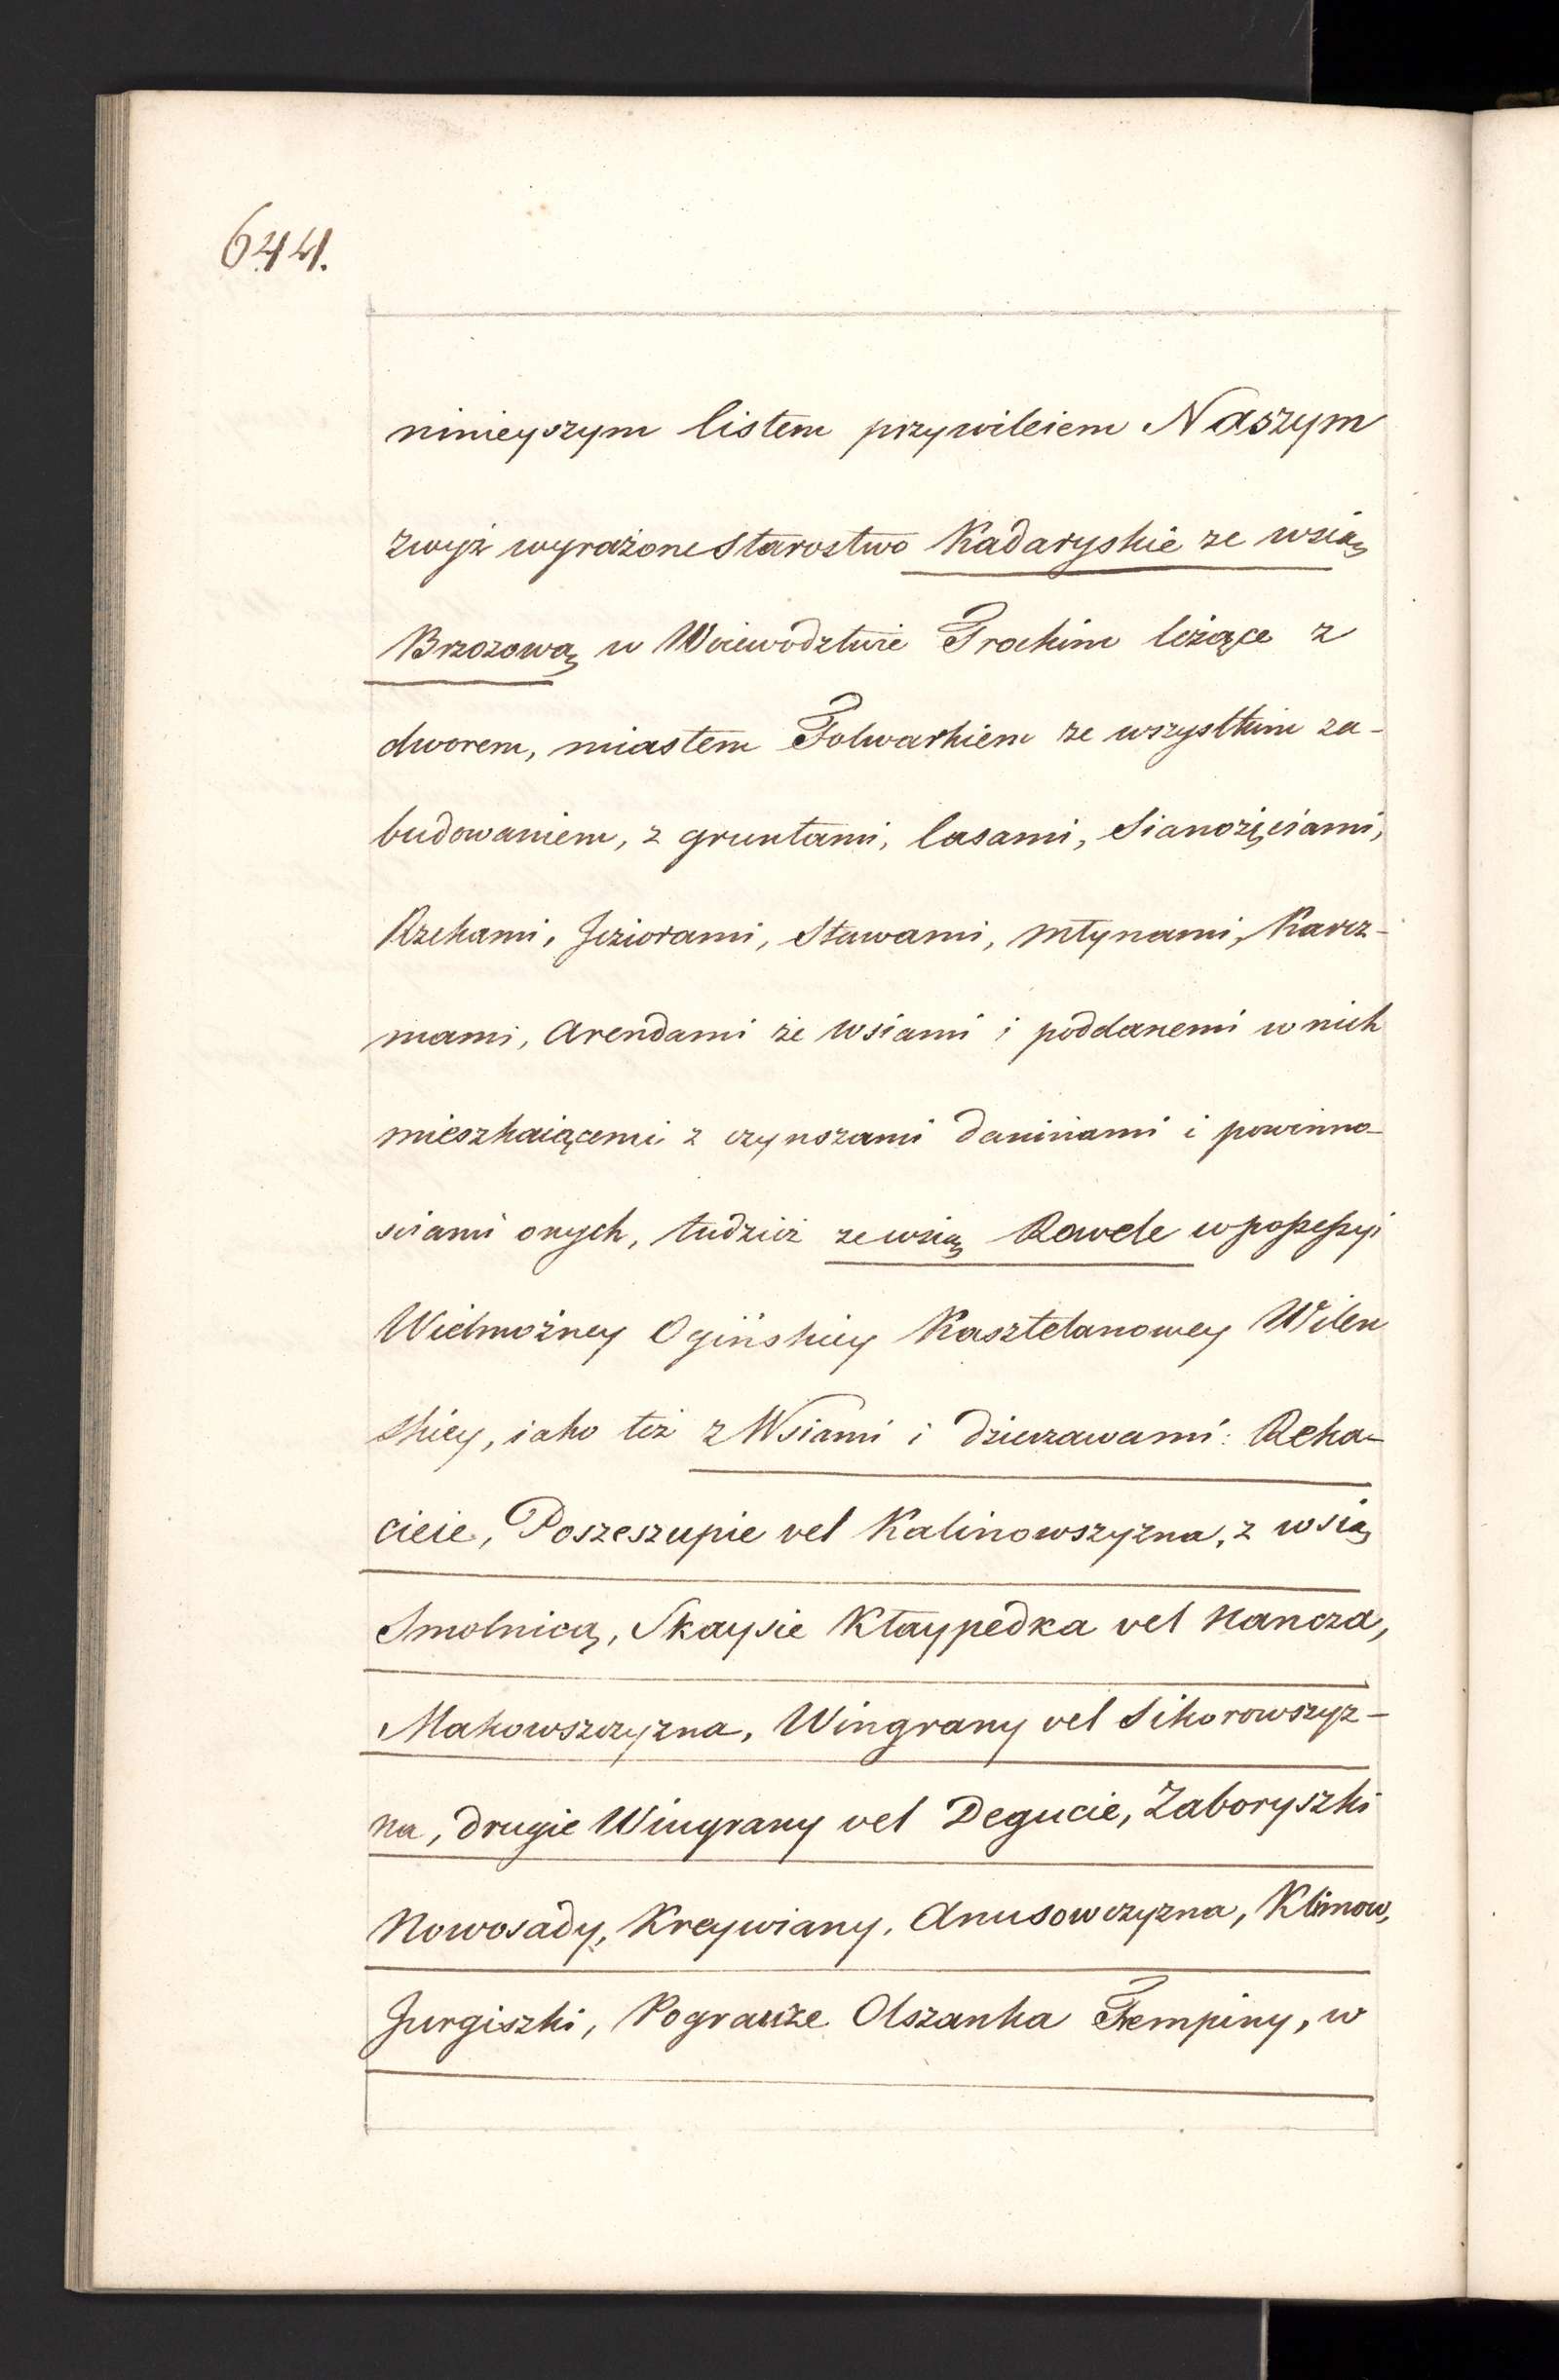 644.
ninieyszym listem przywileiem Naszym
zwyż wyrażone Starostwo Kadaryskie ze wsią
Brzozową w Woiewodztwie Trockim leżące z
dworem, miastem Folwarkiem ze wszystkim za-
budowaniem, z gruntami, lasami, Sianożęciami,
Rzekami, Jeziorami, Stawami, Młynami, Karcz-
mami, Arendami ze Wsiami i poddanemi w nich
mieszkaiącemi z czynszami daninami i powinno-
sciami onych, tudzież ze wsią Rowele w possessyi
Wielmożney Ogińskiey Kasztelanowey Wilen
skiey, iako też z Wsiami i dzierzawami: Reka-
cieie, Poszeszupie vel Kalinowszyzna, z wsią
Smolnicą, Skaysie Kłaypedka vel Hancza,
Makowszczyzna, Wingrany vel Sikorowszyz-
na, drugie Wingrany vel Degucie, Zaboryszki
Nowosady, Kreywiany, Anusowczyzna, Klimow,
Jurgiszki, Pograuże Olszanka Trempiny, w